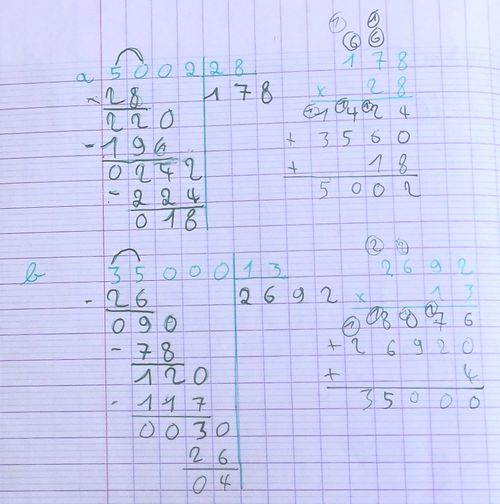 a 5002 28
- 28 178
220
- 196
0242
- 224
018
6 6
178
x 28
1424
+ 3560
+ 18
5002
b 35000 13
- 26 2692
090
- 78
120
- 117
0030
26
04
2692
x 13
8076
+ 26920
+ 4
35000